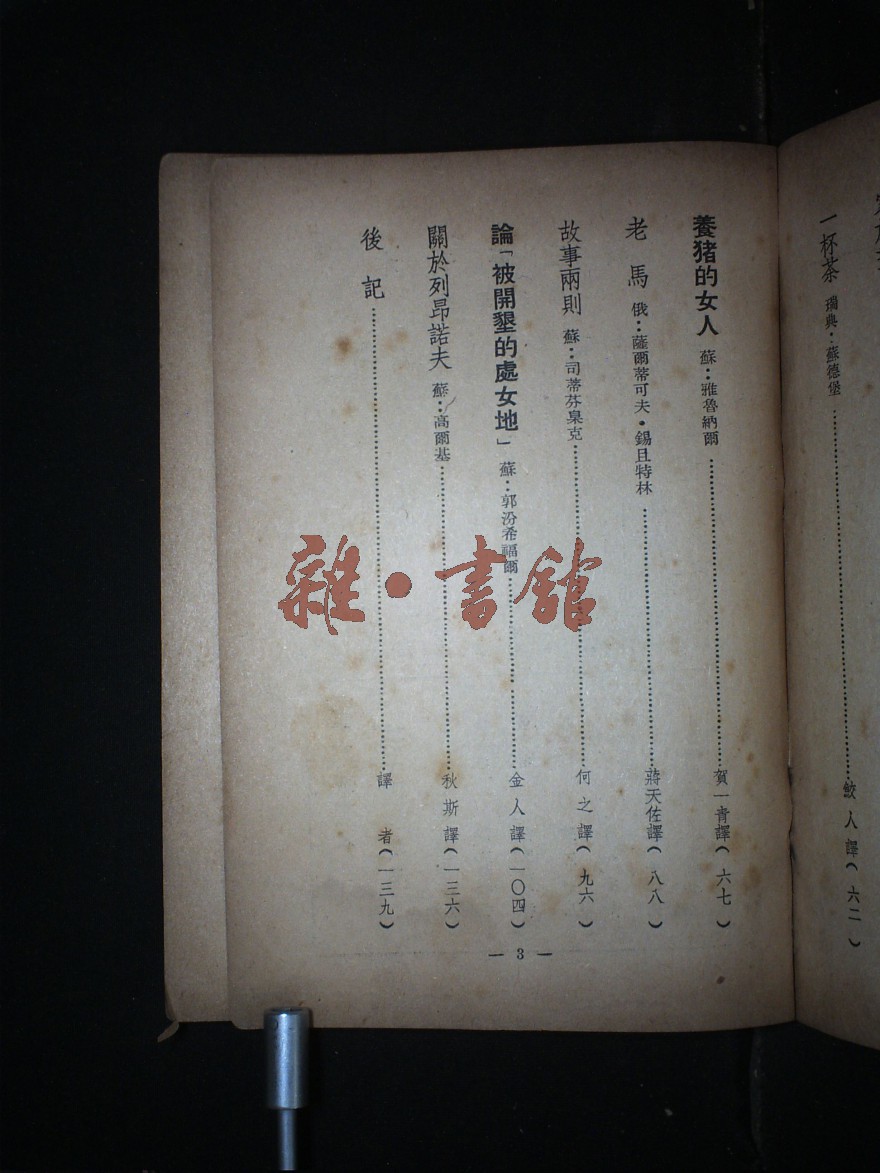 一杯茶 瑞典：蘇德堡……鮫人譯（六二）
養猪的女人 蘇：雅魯納爾……賀一青譯（六七）
老馬 俄：薩爾蒂可夫·錫且特林……蔣天佐譯（八八）
故事兩則 蘇：司蒂芬臬克……何之譯（九六）
論「被開墾的處女地」 蘇：郭汾希福爾……金人譯（一〇四）
關於列昂諾夫 蘇：高爾基……秋斯譯（一三六）
後記……譯者（一三九）
— 3 —
雜·書館